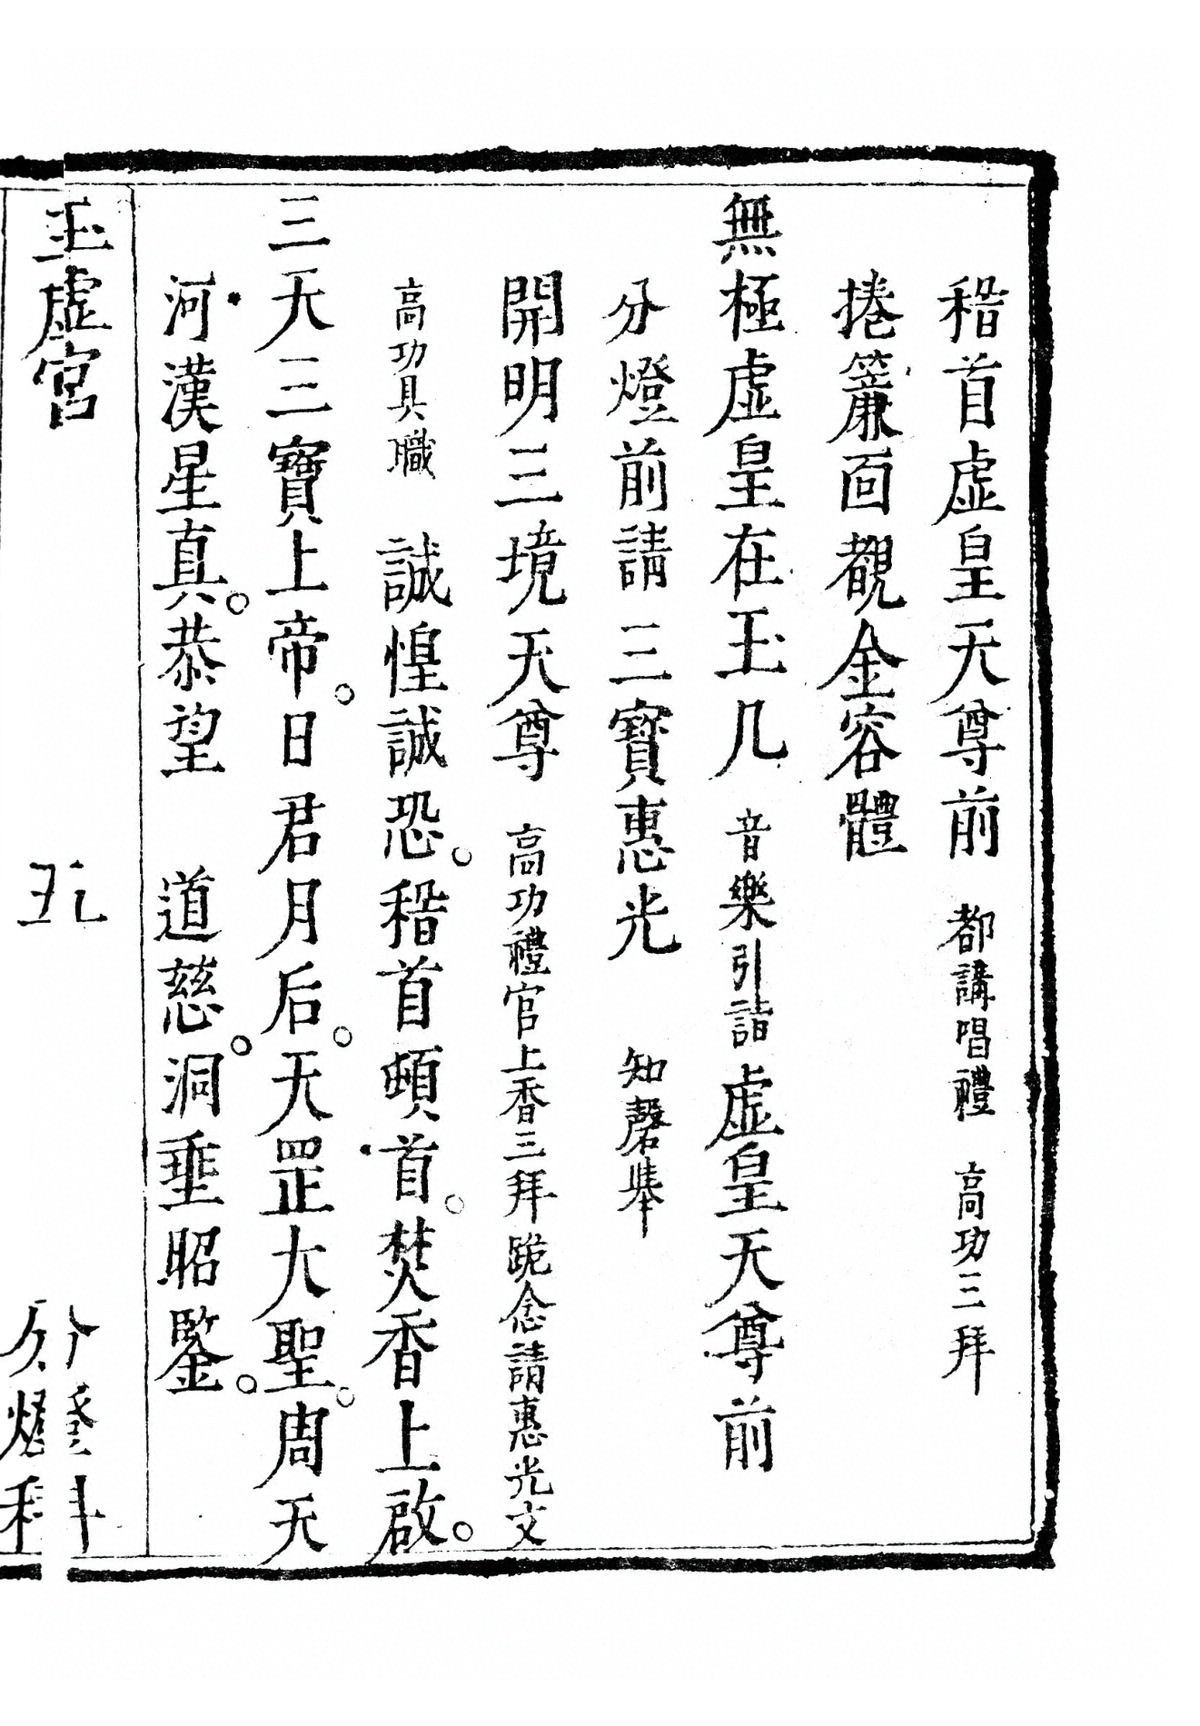 稽首虛皇天尊前 都講唱禮 高功三拜
捲簾面覩金容體
無極虛皇在玉几 音樂引詣虛皇天尊前
分燈前請三寶惠光 知磬舉
開明三境天尊 高功禮官上香三拜跪念請惠光文
高功具職 誠惶誠恐。稽首頓首。焚香上啟。
三天三寶上帝。日君月后。天罡大聖。周天
河漢星真。恭望 道慈。洞垂昭鑒。
玉虛宮 五 分燈科